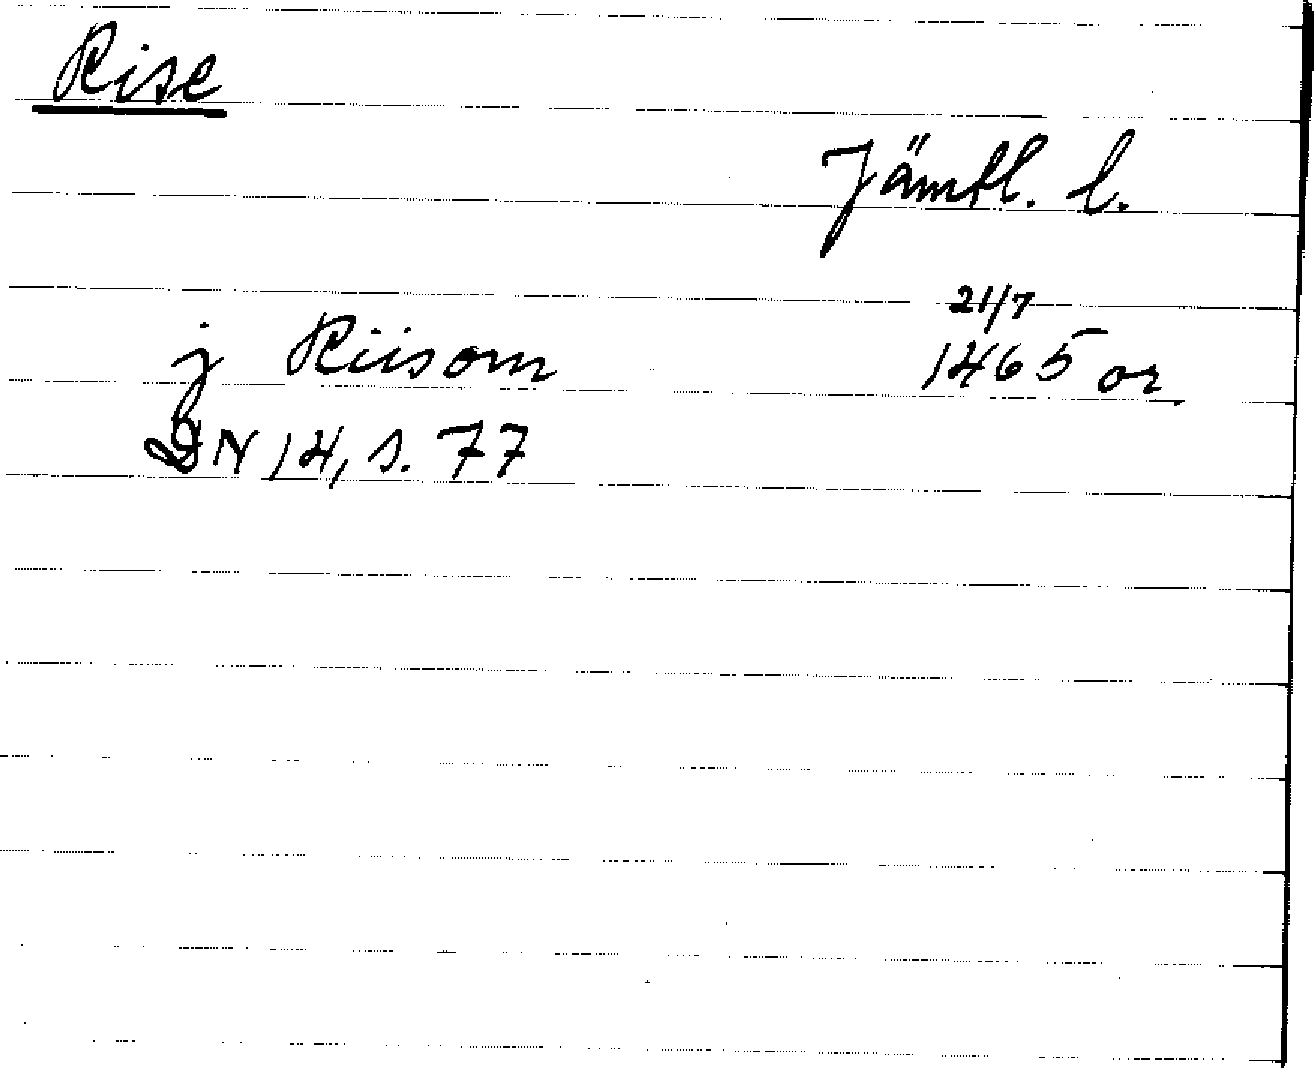 Rise
Jämtl. l.
21/7
j Riisom 1465 or.
DN 14, s. 77